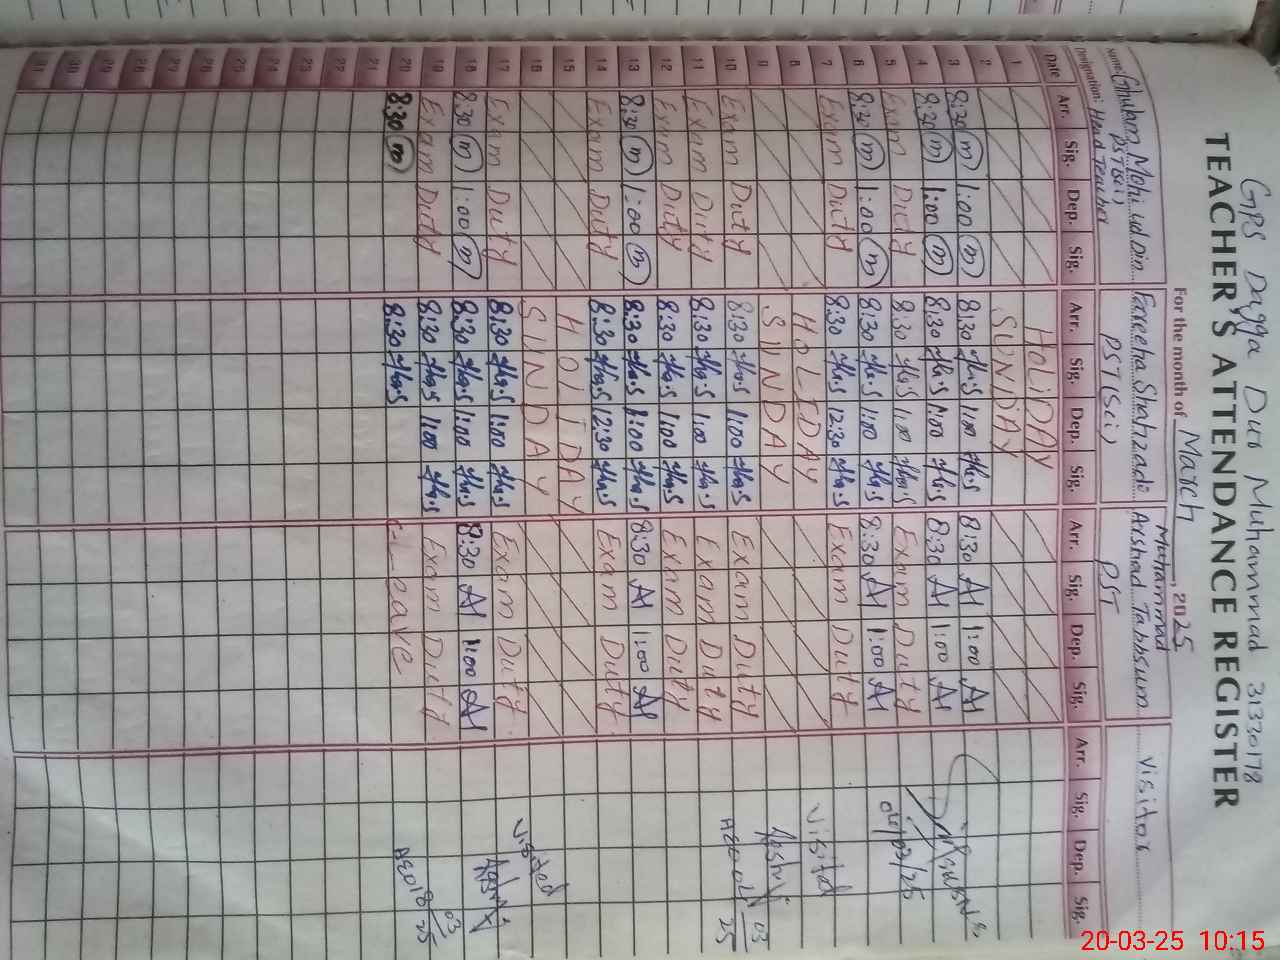 GPS Dagga Duo Muhammad 31330178
TEACHER'S ATTENDANCE REGISTER
For the month of March, 2025
Name: Ghulam Mohi ud Din Fareeha Shahzado Muhammad Arshad Tabbsum Visitor
Designation: PST(Sci) Head Teacher PST(Sci) PST
Date Arr. Sig. Dep. Sig. Arr. Sig. Dep. Sig. Arr. Sig. Dep. Sig. Arr. Sig. Dep. Sig.
1 HOLIDAY
2 SUNDAY
3 8:30 m 1:00 m 8:30 1:00 8:30 A 1:00 A
4 8:30 m 1:00 m 8:30 1:00 8:30 A 1:00 A
5 Exam Duty 8:30 1:00 Exam Duty
6 8:30 m 1:00 m 8:30 1:00 8:30 A 1:00 A
7 Exam Duty 8:30 12:30 Exam Duty
8 HOLIDAY Visited
9 SUNDAY
10 Exam Duty 8:30 1:00 Exam Duty AEO
11 Exam Duty 8:30 1:00 Exam Duty
12 Exam Duty 8:30 1:00 Exam Duty
13 8:30 m 1:00 m 8:30 1:00 8:30 A 1:00 A
14 Exam Duty 8:30 12:30 Exam Duty
15 HOLIDAY
16 SUNDAY Visited
17 Exam Duty 8:30 1:00 Exam Duty
18 8:30 m 1:00 m 8:30 1:00 8:30 A 1:00 A
19 Exam Duty 8:30 1:00 Exam Duty
20 8:30 m 8:30 C-Leave AEO 18/03/25
21
22
23
24
25
26
27
28
29
30
31
20-03-25 10:15